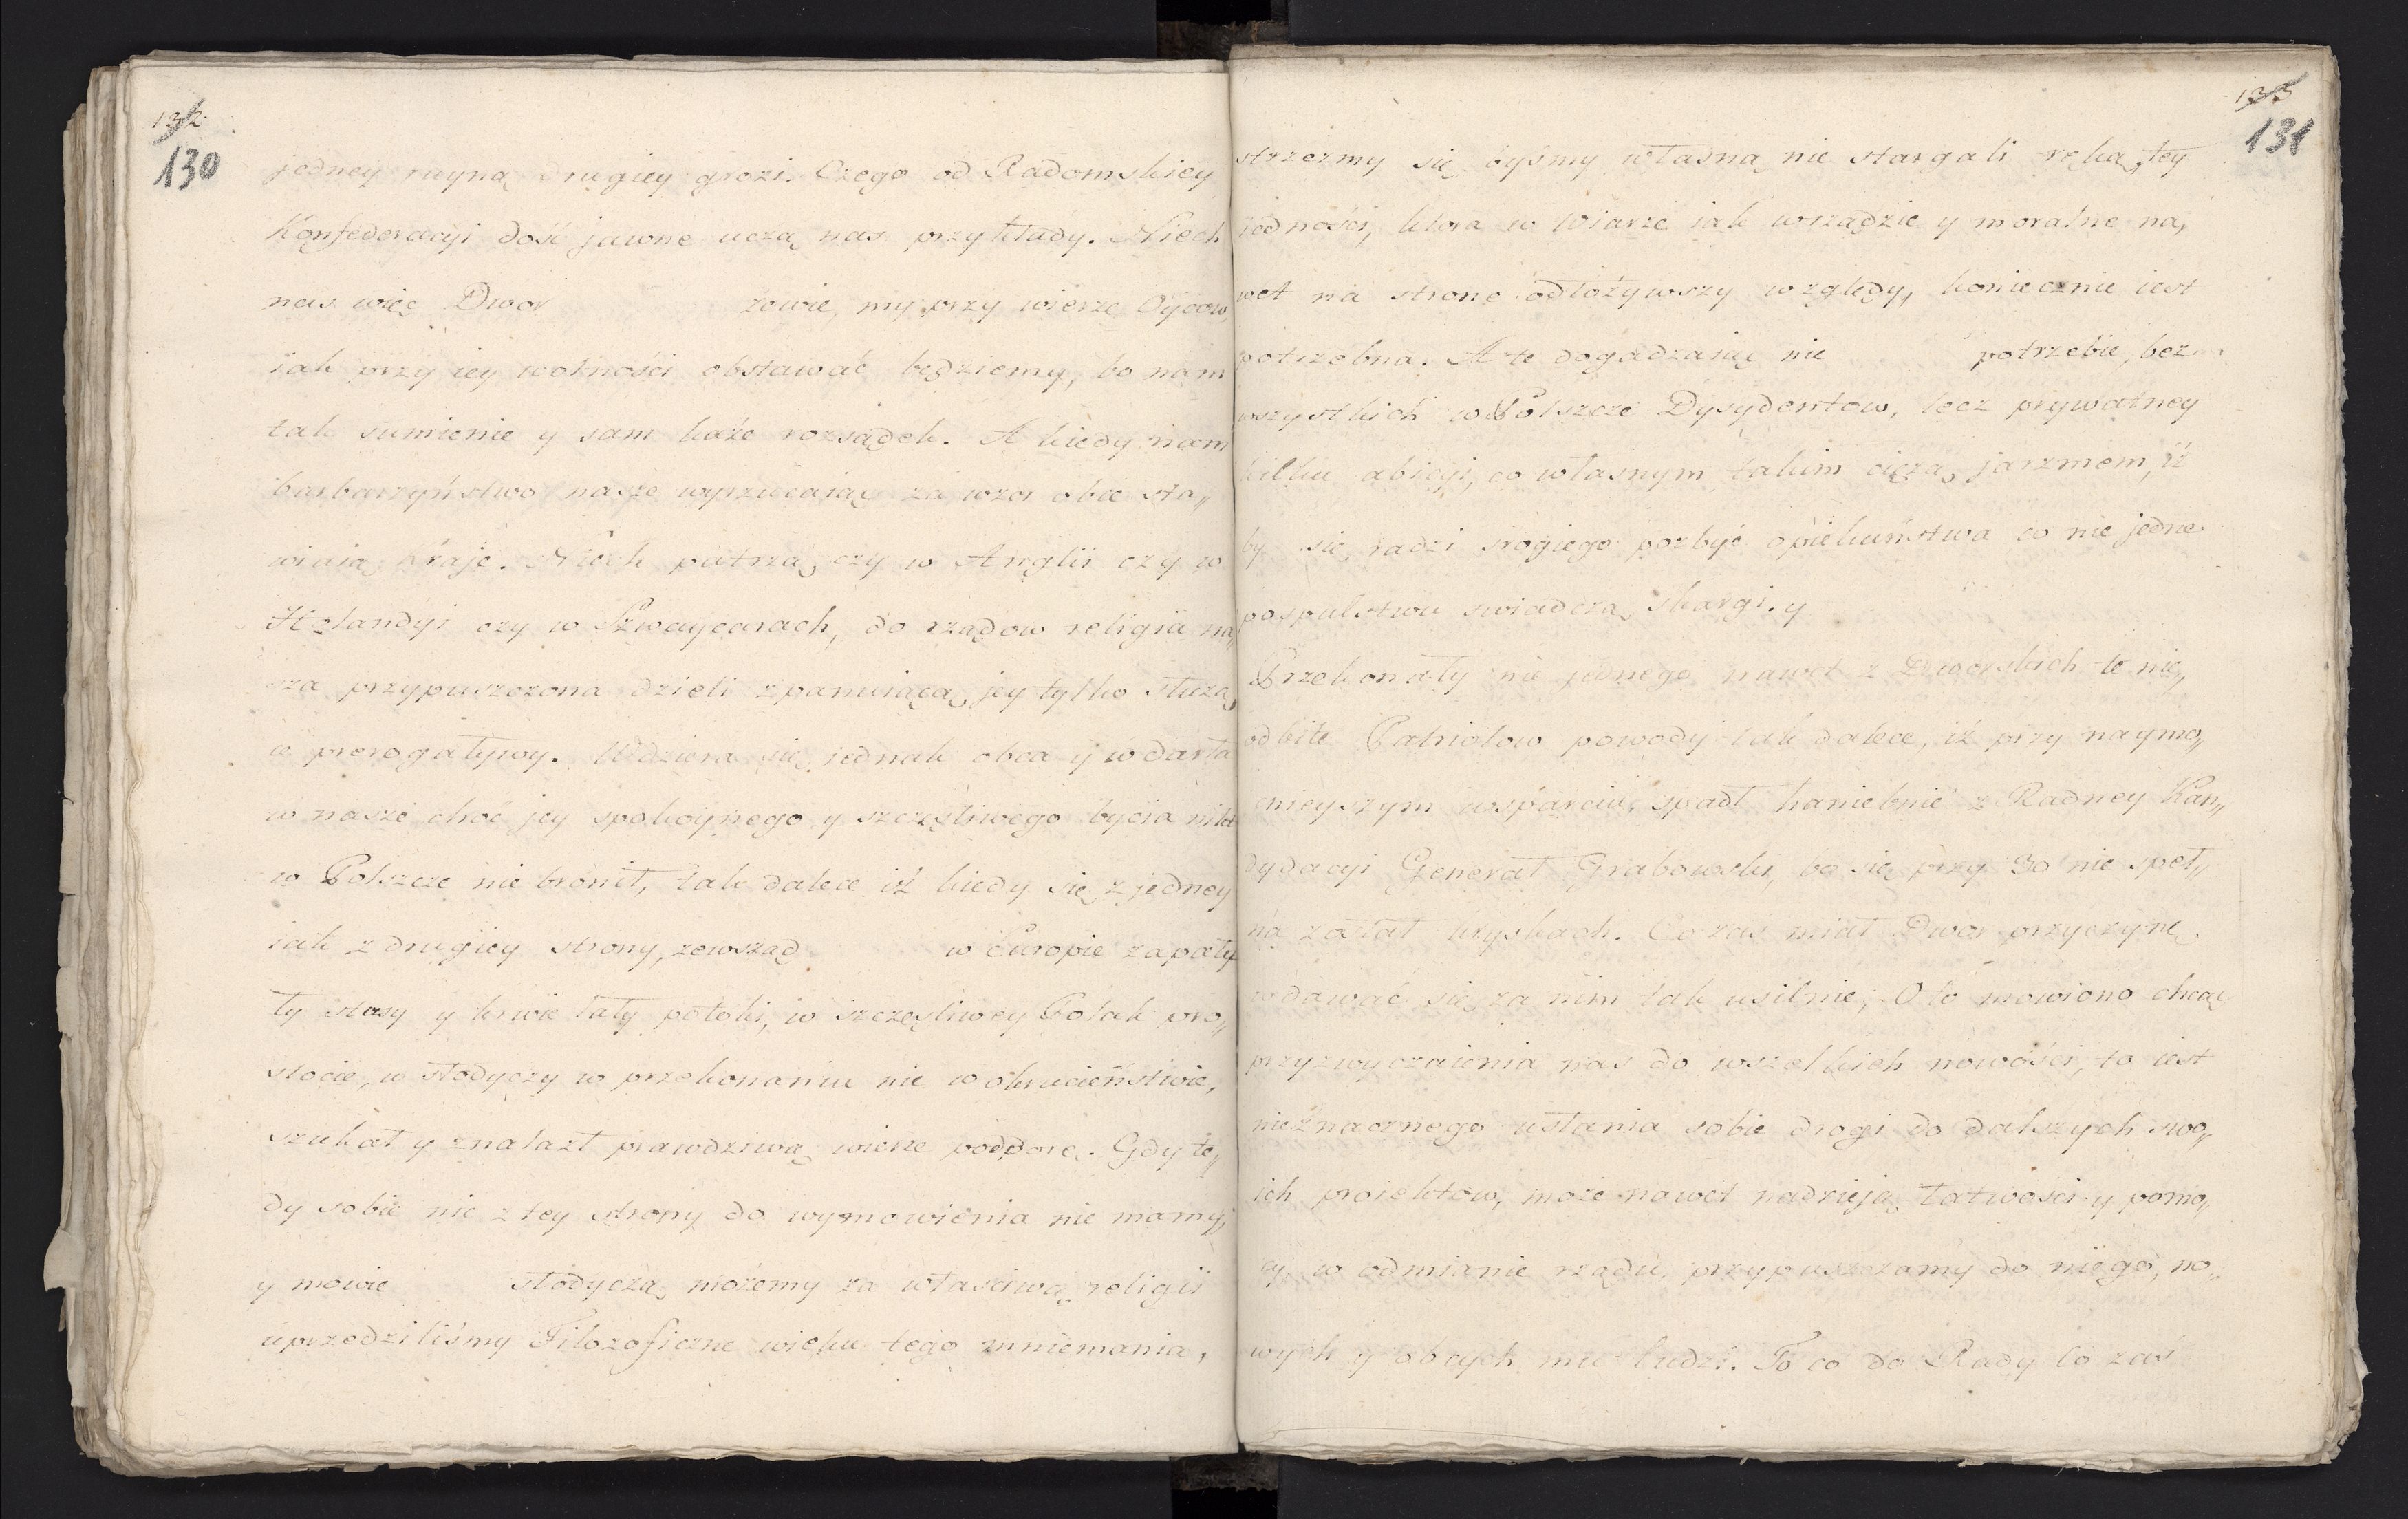 132
130
jedney ruyną drugiey grozi. Czego od Radomskiey
Konfederacyi dość jawne uczą nas przykłady. Niech
nas więc Dwor zowie, my przy wierze Oycow,
iak przy iey wolności obstawać będziemy, bo nam
tak sumienie y sam każe rozsądek. A kiedy nam
barbarzyństwo nasze wyrzucaiąc za wzor obce sta„
wiaią kraje. Niech patrzą czy w Anglii czy w
Holandyi czy w Szwaycarach, do rządow religia na„
sza przypuszczona dzieli z panuiącą jey tylko służą
ce prerogatywy. Wdziera się jednak obca y wdarła
w nasze choć jey spokoynego y szczęśliwego bycia nikt
w Polszcze nie bronił, tak dalece iż kiedy się z jedney
iak z drugiey strony, zewsząd w Europie zapały
ły stosy y krwie lały potoki, w szczęśliwey Polak pro„
stocie, w słodyczy w przekonaniu nie w okrucieństwie,
szukał y znalazł prawdziwą wierze podporę. Gdy te„
dy sobie nic z tey strony do wymowienia nie mamy,
y mowie słodyczą możemy za właściwą religii
uprzedziliśmy Filozoficzne wieku tego mniemania,
133
131
strzeżmy się byśmy własną nie stargali ręką, tey
iedności, ktora w Wiarze iak w rządzie y moralne na„
wet na stronę odłożywszy względy, koniecznie iest
potrzebna. A te dogadzaiąc nie potrzebie, bez
wszystkich w Polszcze Dysydentow, lecz prywatney
kilku abicyi, co własnym takim ciężą jarzmem, iż
by się radzi srogiego pozbyć opiekuństwa co nie jedne
pospulstwu swiadczą skargi. y
Przekonały nie jednego nawet z Dworskich te nie„
odbite Patriotow powody tak dalece, iż przy naymo„
cnieyszym wsparciu, spadł haniebnie z Radney Kan„
dydacyi Generał Grabowski, bo się przy 30 nie speł„
na został kryskach. Co zaś miał Dwor przyczynę
wdawać się za nim tak usilnie, Oto mowiono chcąc
przyzwyczaienia nas do wszelkich nowości, to iest
nieznacznego usłania sobie drogi do dalszych swo„
ich proiektow, może nawet nadzieją łatwości y pomo„
cy, w odmianie rządu, przypuszczamy do niego, no„
wych y obcych mu ludzi. To co do Rady Co zaś